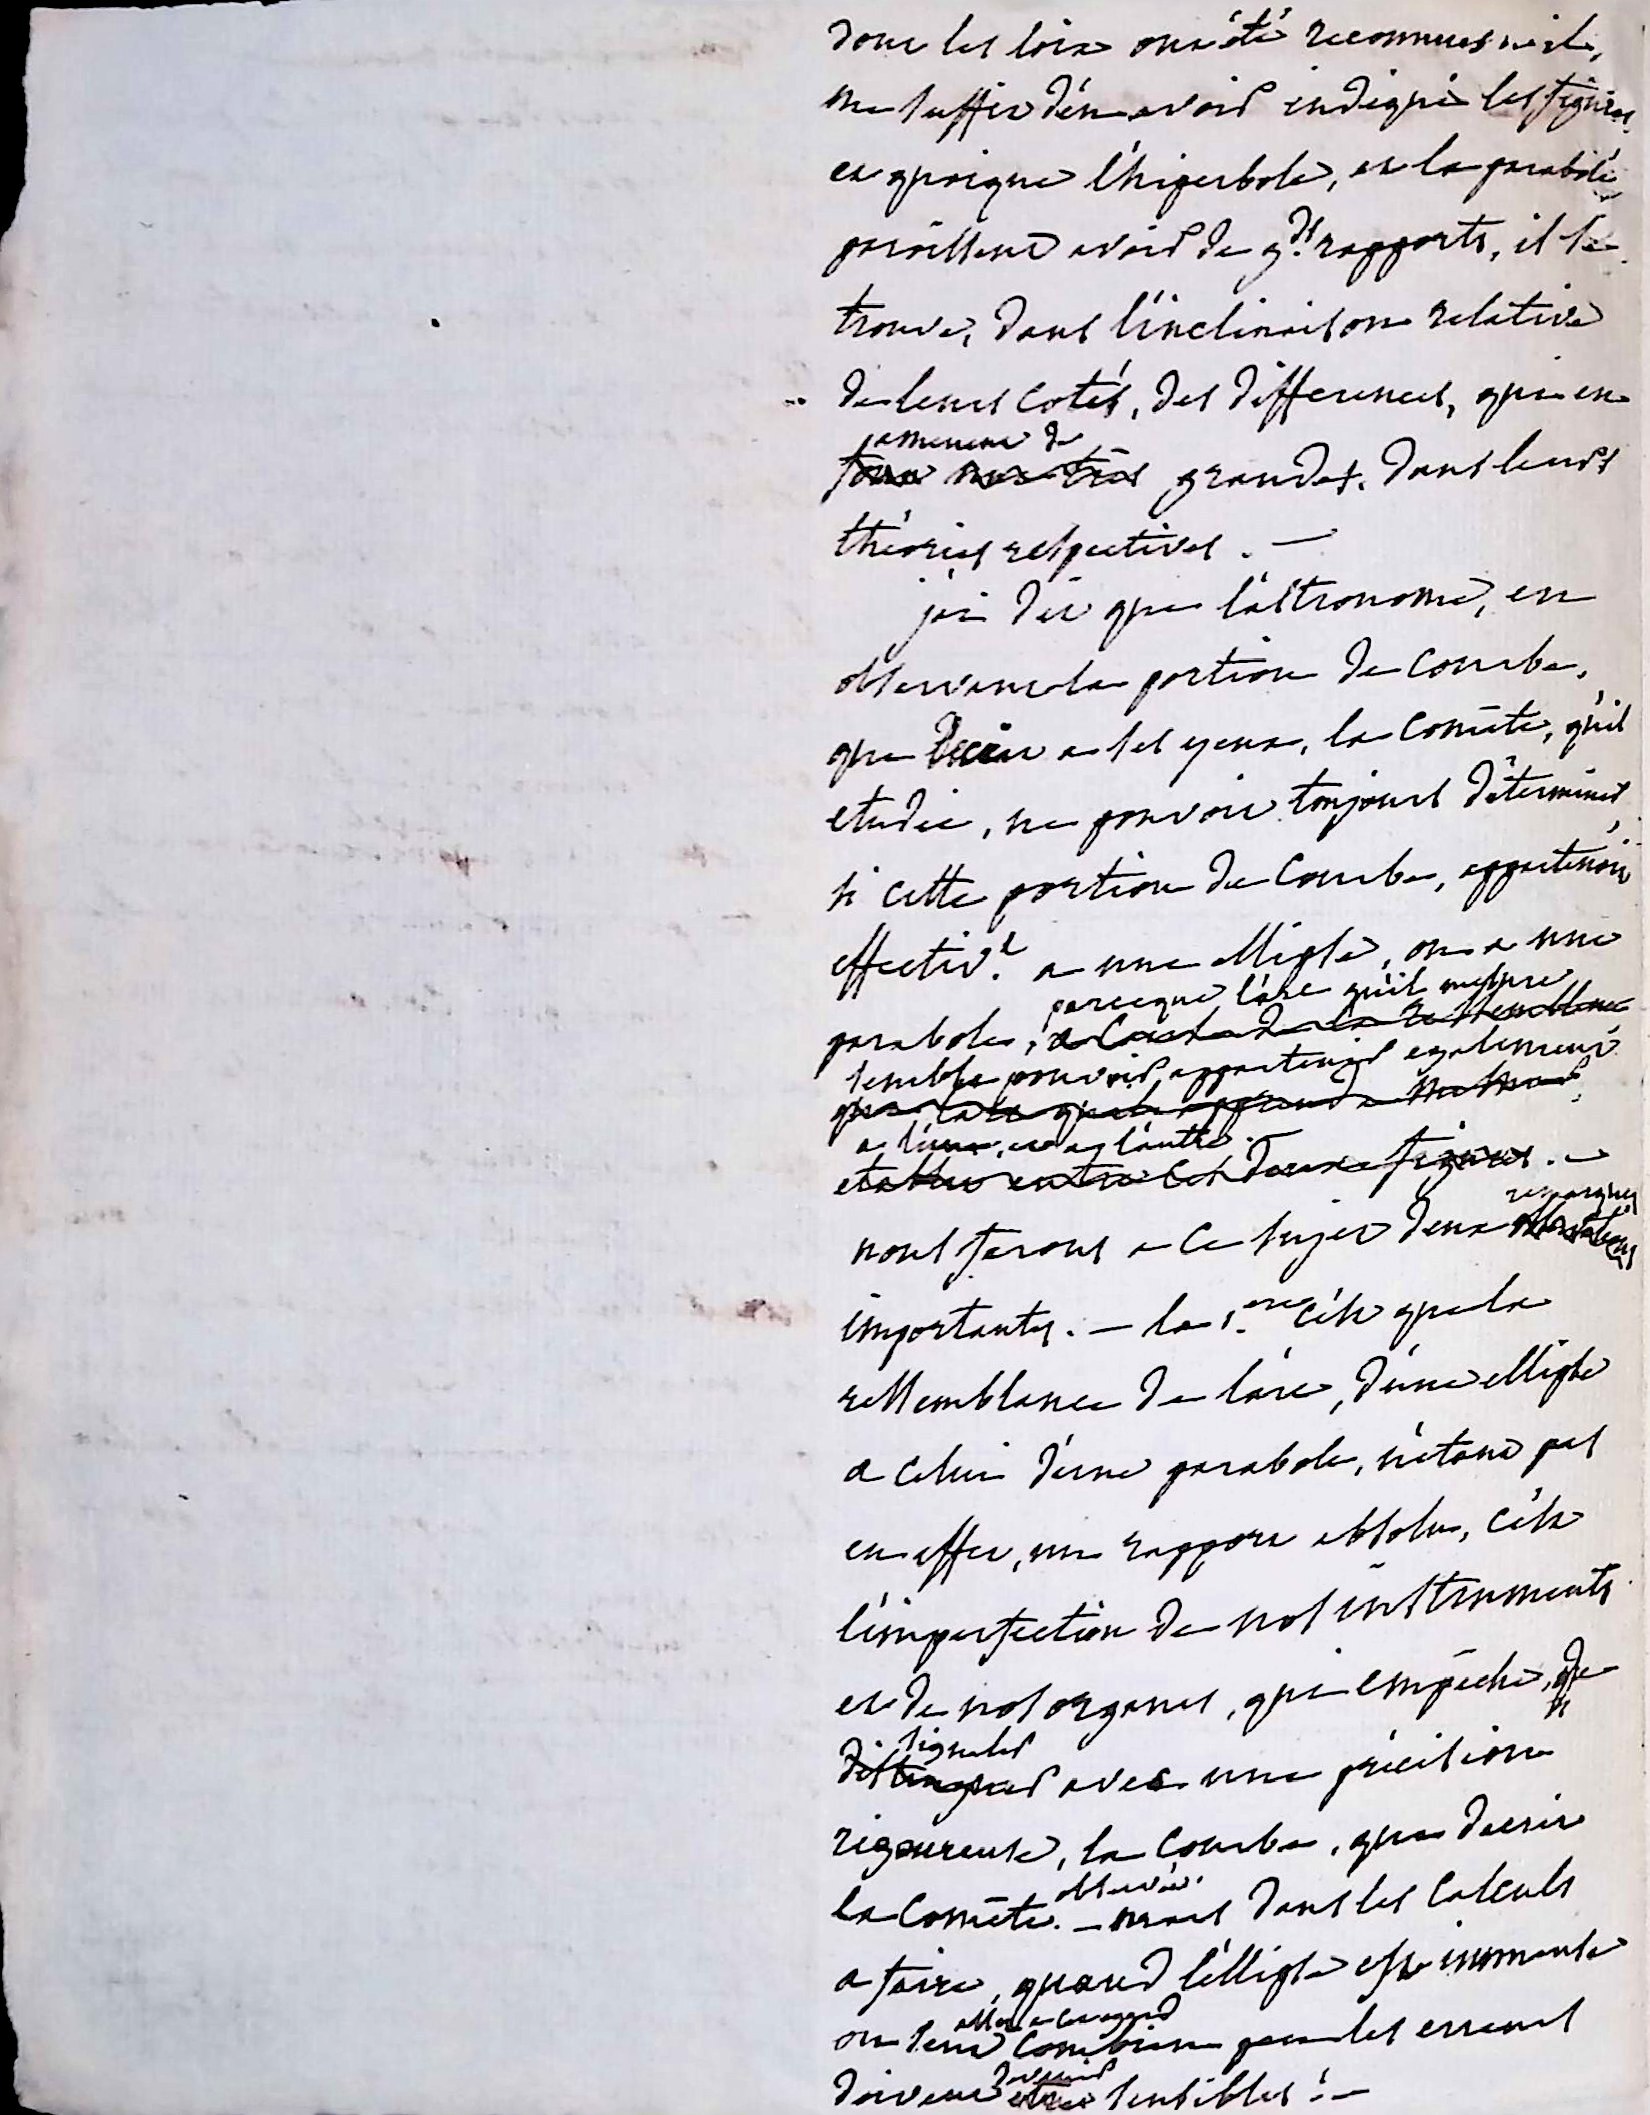 dont les loix ont été reconnues. il
me suffit d'en avoir indiqué les figures.
et quoique l'hiperbole, et la parabole
paroissent avoir de g.ds rapports, il se
trouve, dans l'inclinaison relative
de leurs cotés, des differences, qui en
amenent de
font grandes, dans leurs
théories respectives. —
j'ai dit que l'astronome, en
observant la portion de courbe,
que decrit a ses yeux, la comète, qu'il
etudie, ne pouvoit toujours déterminer,
si cette portion de courbe, appartenoit
effectiv.t a une ellipse, ou a une
parceque l'arc qu'il mesure
parabole, a cause de la ressemblance
semble pouvoir appartenir egalement
a l'une, et a l'autre. —
etablie entre ces deux figures. —
remarques
nous ferons a ce sujet deux observations
importantes. — la 1.ere c'est que la
ressemblance de l'arc, d'une ellipse
a celui d'une parabole, n'étant pas
en effet, un rapport absolu, c'est
l'imperfection de nos instruments
et de nos organes, qui empêche, de
signaler
distinguer avec une précision
rigoureuse, la courbe, que decrit
observée.
la comète. — mais dans les calculs
a faire, quand l'ellipse est immense
assez a cet egard
on sent combien peu les erreurs
devenir
doivent etre sensibles! —